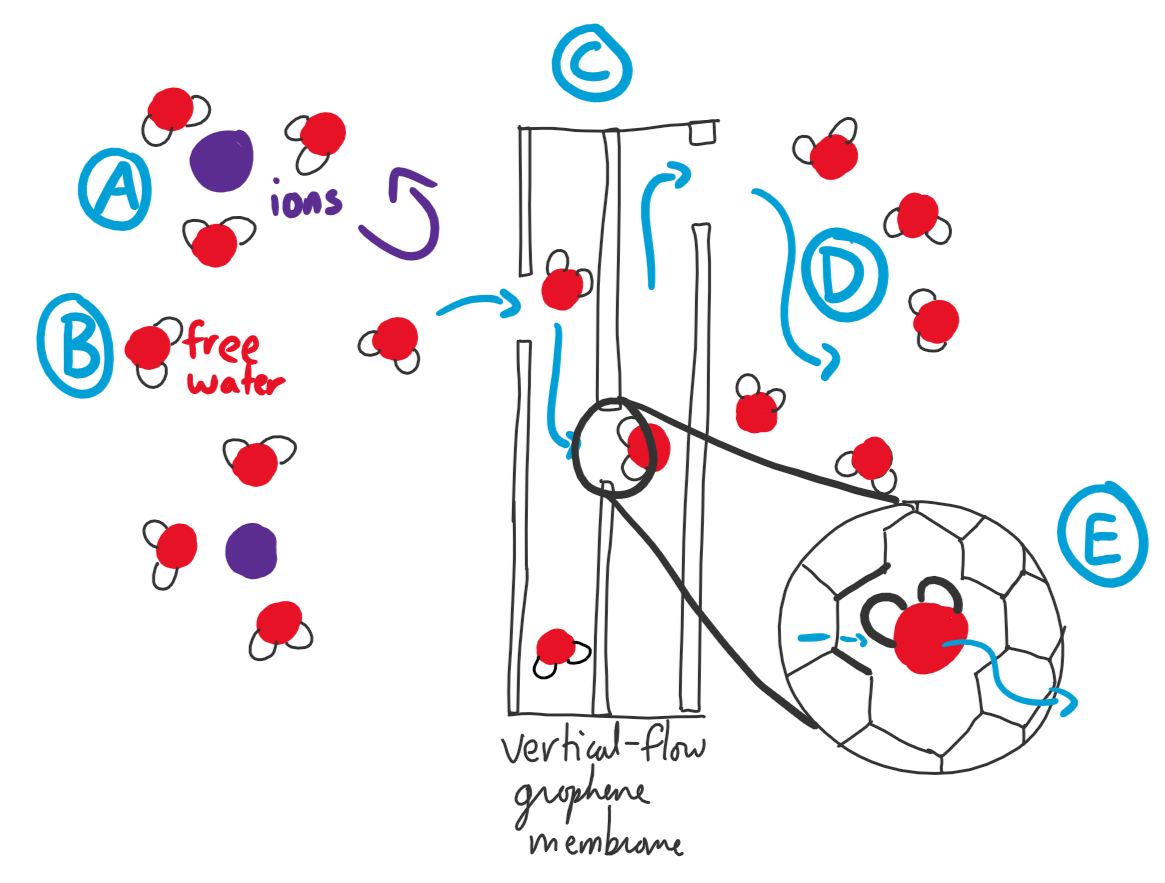 C
A
ions
D
B
free
water
E
vertical-flow
graphene
membrane